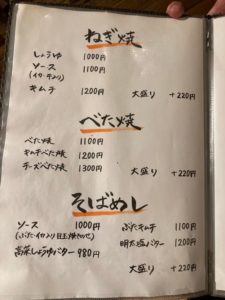 ねぎ焼
しょうゆ 1000円
ソース 1100円
(イカ・チョリ)
キムチ 1200円 大盛り +220円
べた焼
べた焼 1100円
キムチべた焼 1200円
チーズべた焼 1300円 大盛り +220円
そばめし
ソース 1000円 ぶたキムチ 1100円
(ぶた・イカ入り 目玉焼のせ)
明太塩バター 1200円
高菜しょうゆバター 980円
大盛り +220円